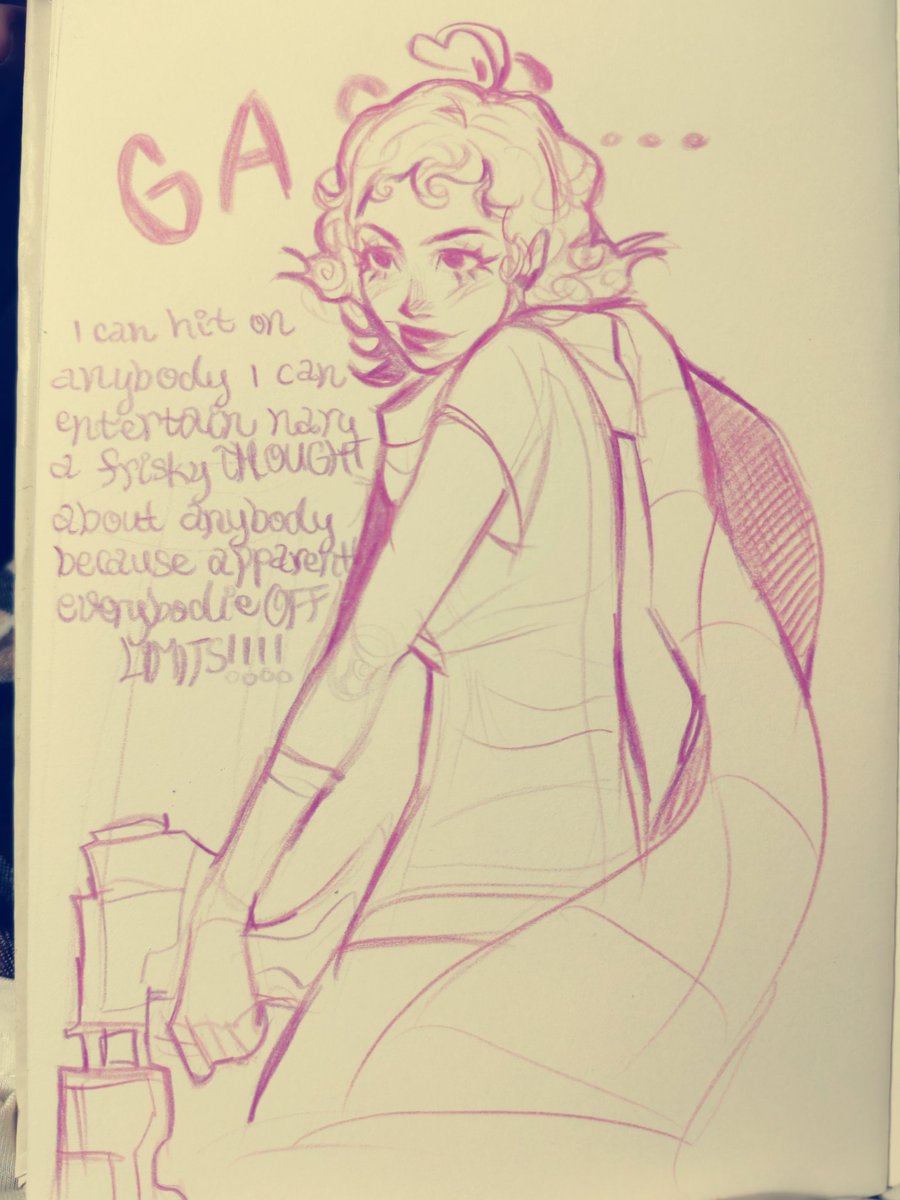 GA ...
I can hit on
anybody I can
entertain nary
a frisky THOUGHT
about anybody
because apparent
everybodie OFF
LIMITS!!!!